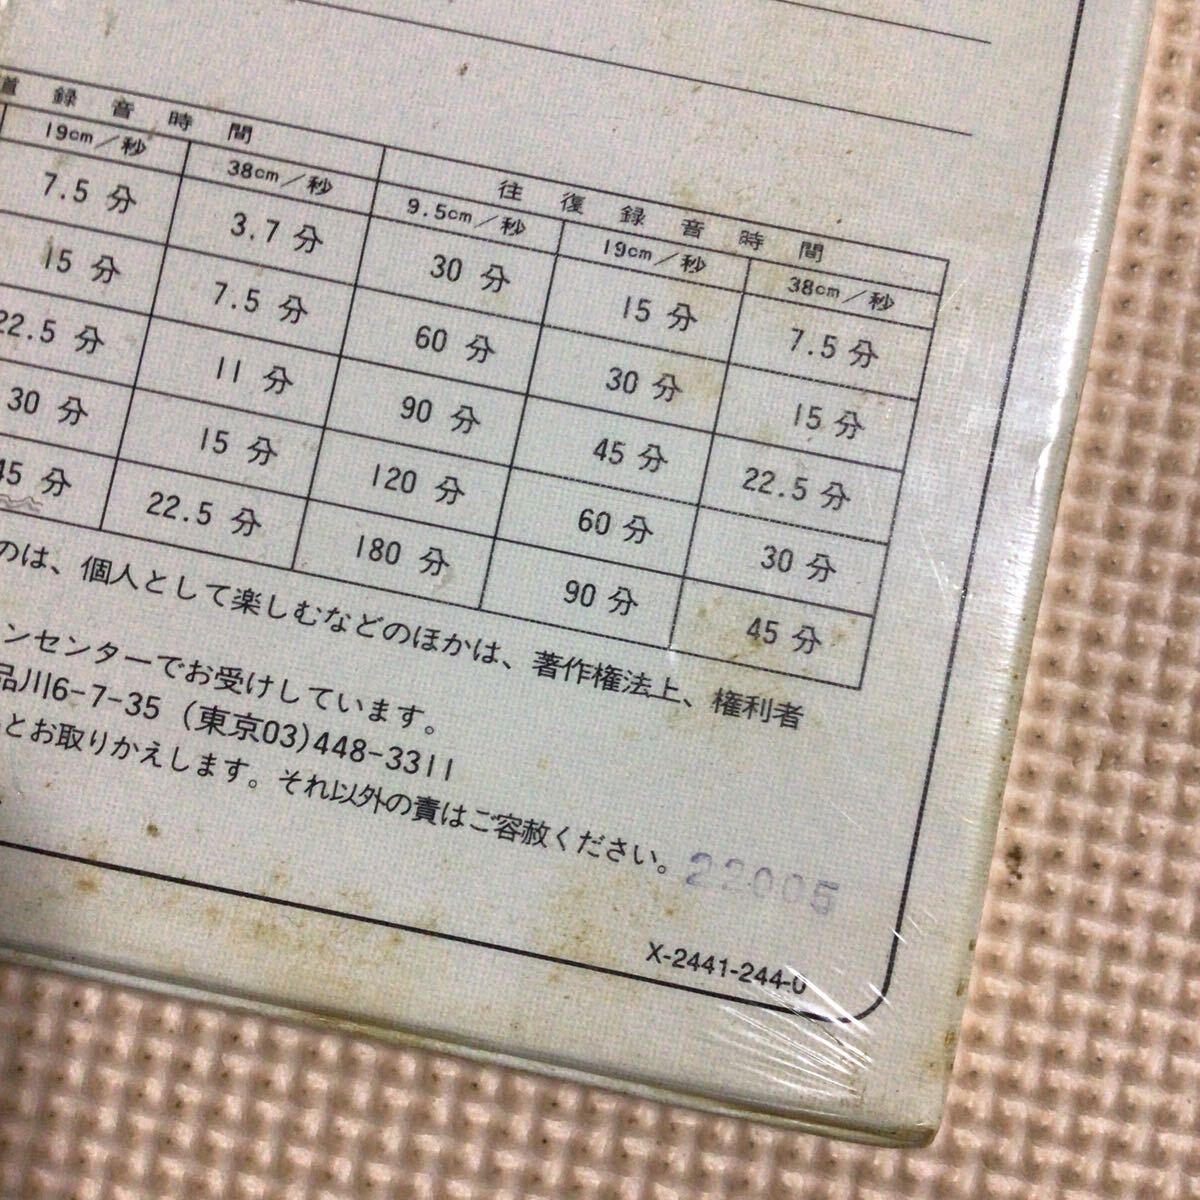 道録音時間 往復録音時間
19cm/秒 38cm/秒 9.5cm/秒 19cm/秒 38cm/秒
7.5分 3.7分 30分 15分 7.5分
15分 7.5分 60分 30分 15分
22.5分 11分 90分 45分 22.5分
30分 15分 120分 60分 30分
45分 22.5分 180分 90分 45分
のは、個人として楽しむなどのほかは、著作権法上、権利者
ンセンターでお受けしています。
品川6-7-35 (東京03)448-3311
とお取りかえします。それ以外の責はご容赦ください。
22005
X-2441-244-0